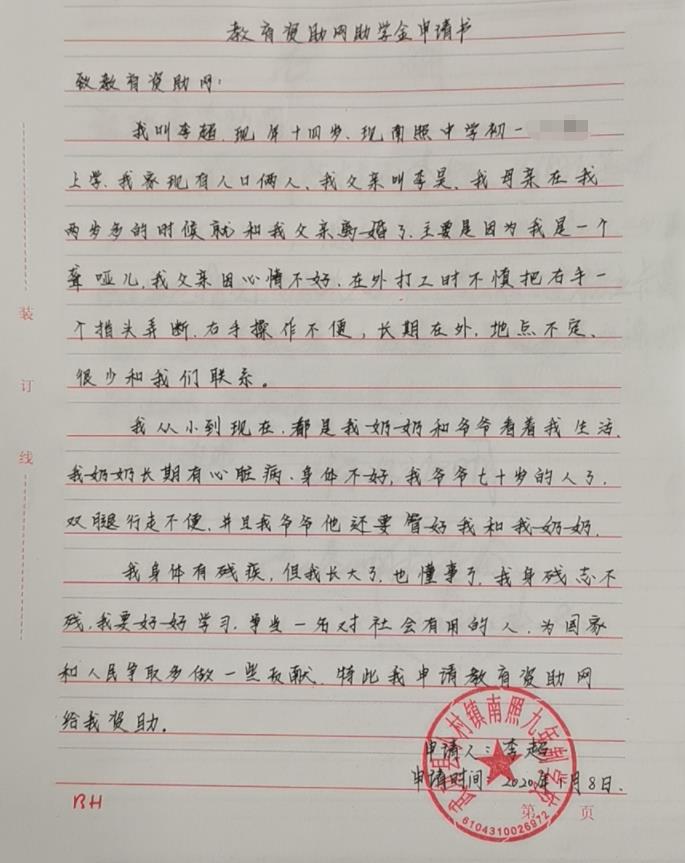 教育资助网助学金申请书
致教育资助网:
我叫李超.现年十四岁、现南照中学初一
上学.我家现有人口俩人、我父亲叫李昊、我母亲在我
两岁多的时候就和我父亲离婚了.主要是因为我是一个
聋哑儿.我父亲因心情不好.在外打工时不慎把右手一
个指头弄断.右手操作不便,长期在外.地点不定、
很少和我们联系。
我从小到现在.都是我奶奶和爷爷看着我生活.
我奶奶长期有心脏病.身体不好,我爷爷七十岁的人了.
双腿行走不便.并且我爷爷他还要管好我和我奶奶.
我身体有残疾,但我长大了.也懂事了.我身残志不
残.我要好好学习.争当一名对社会有用的人.为国家
和人民争取多做一些贡献.特此我申请教育资助网
给我资助。
申请人:李超
申请时间:2020年 月8日.
村镇南照九年制学校
6104310026972
装
订
线
BH
第 页